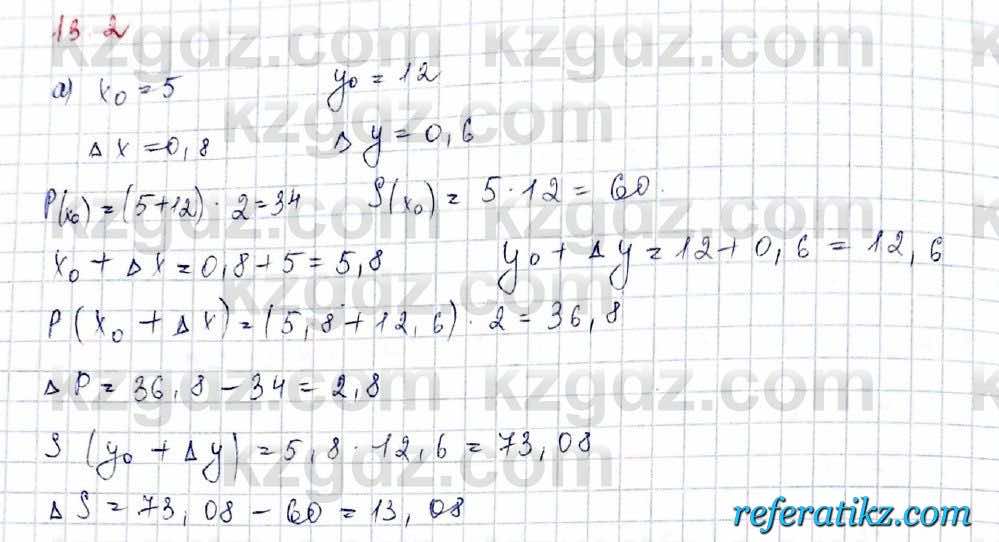 13.2
а) x₀ = 5 y₀ = 12
Δx = 0,8 Δy = 0,6
P(x₀) = (5+12)·2 = 34 S(x₀) = 5·12 = 60.
x₀ + Δx = 0,8 + 5 = 5,8 y₀ + Δy = 12 + 0,6 = 12,6
P(x₀ + Δx) = (5,8 + 12,6)·2 = 36,8
ΔP = 36,8 - 34 = 2,8
S (y₀ + Δy) = 5,8·12,6 = 73,08
ΔS = 73,08 - 60 = 13,08
kzgdz.com
referatikz.com